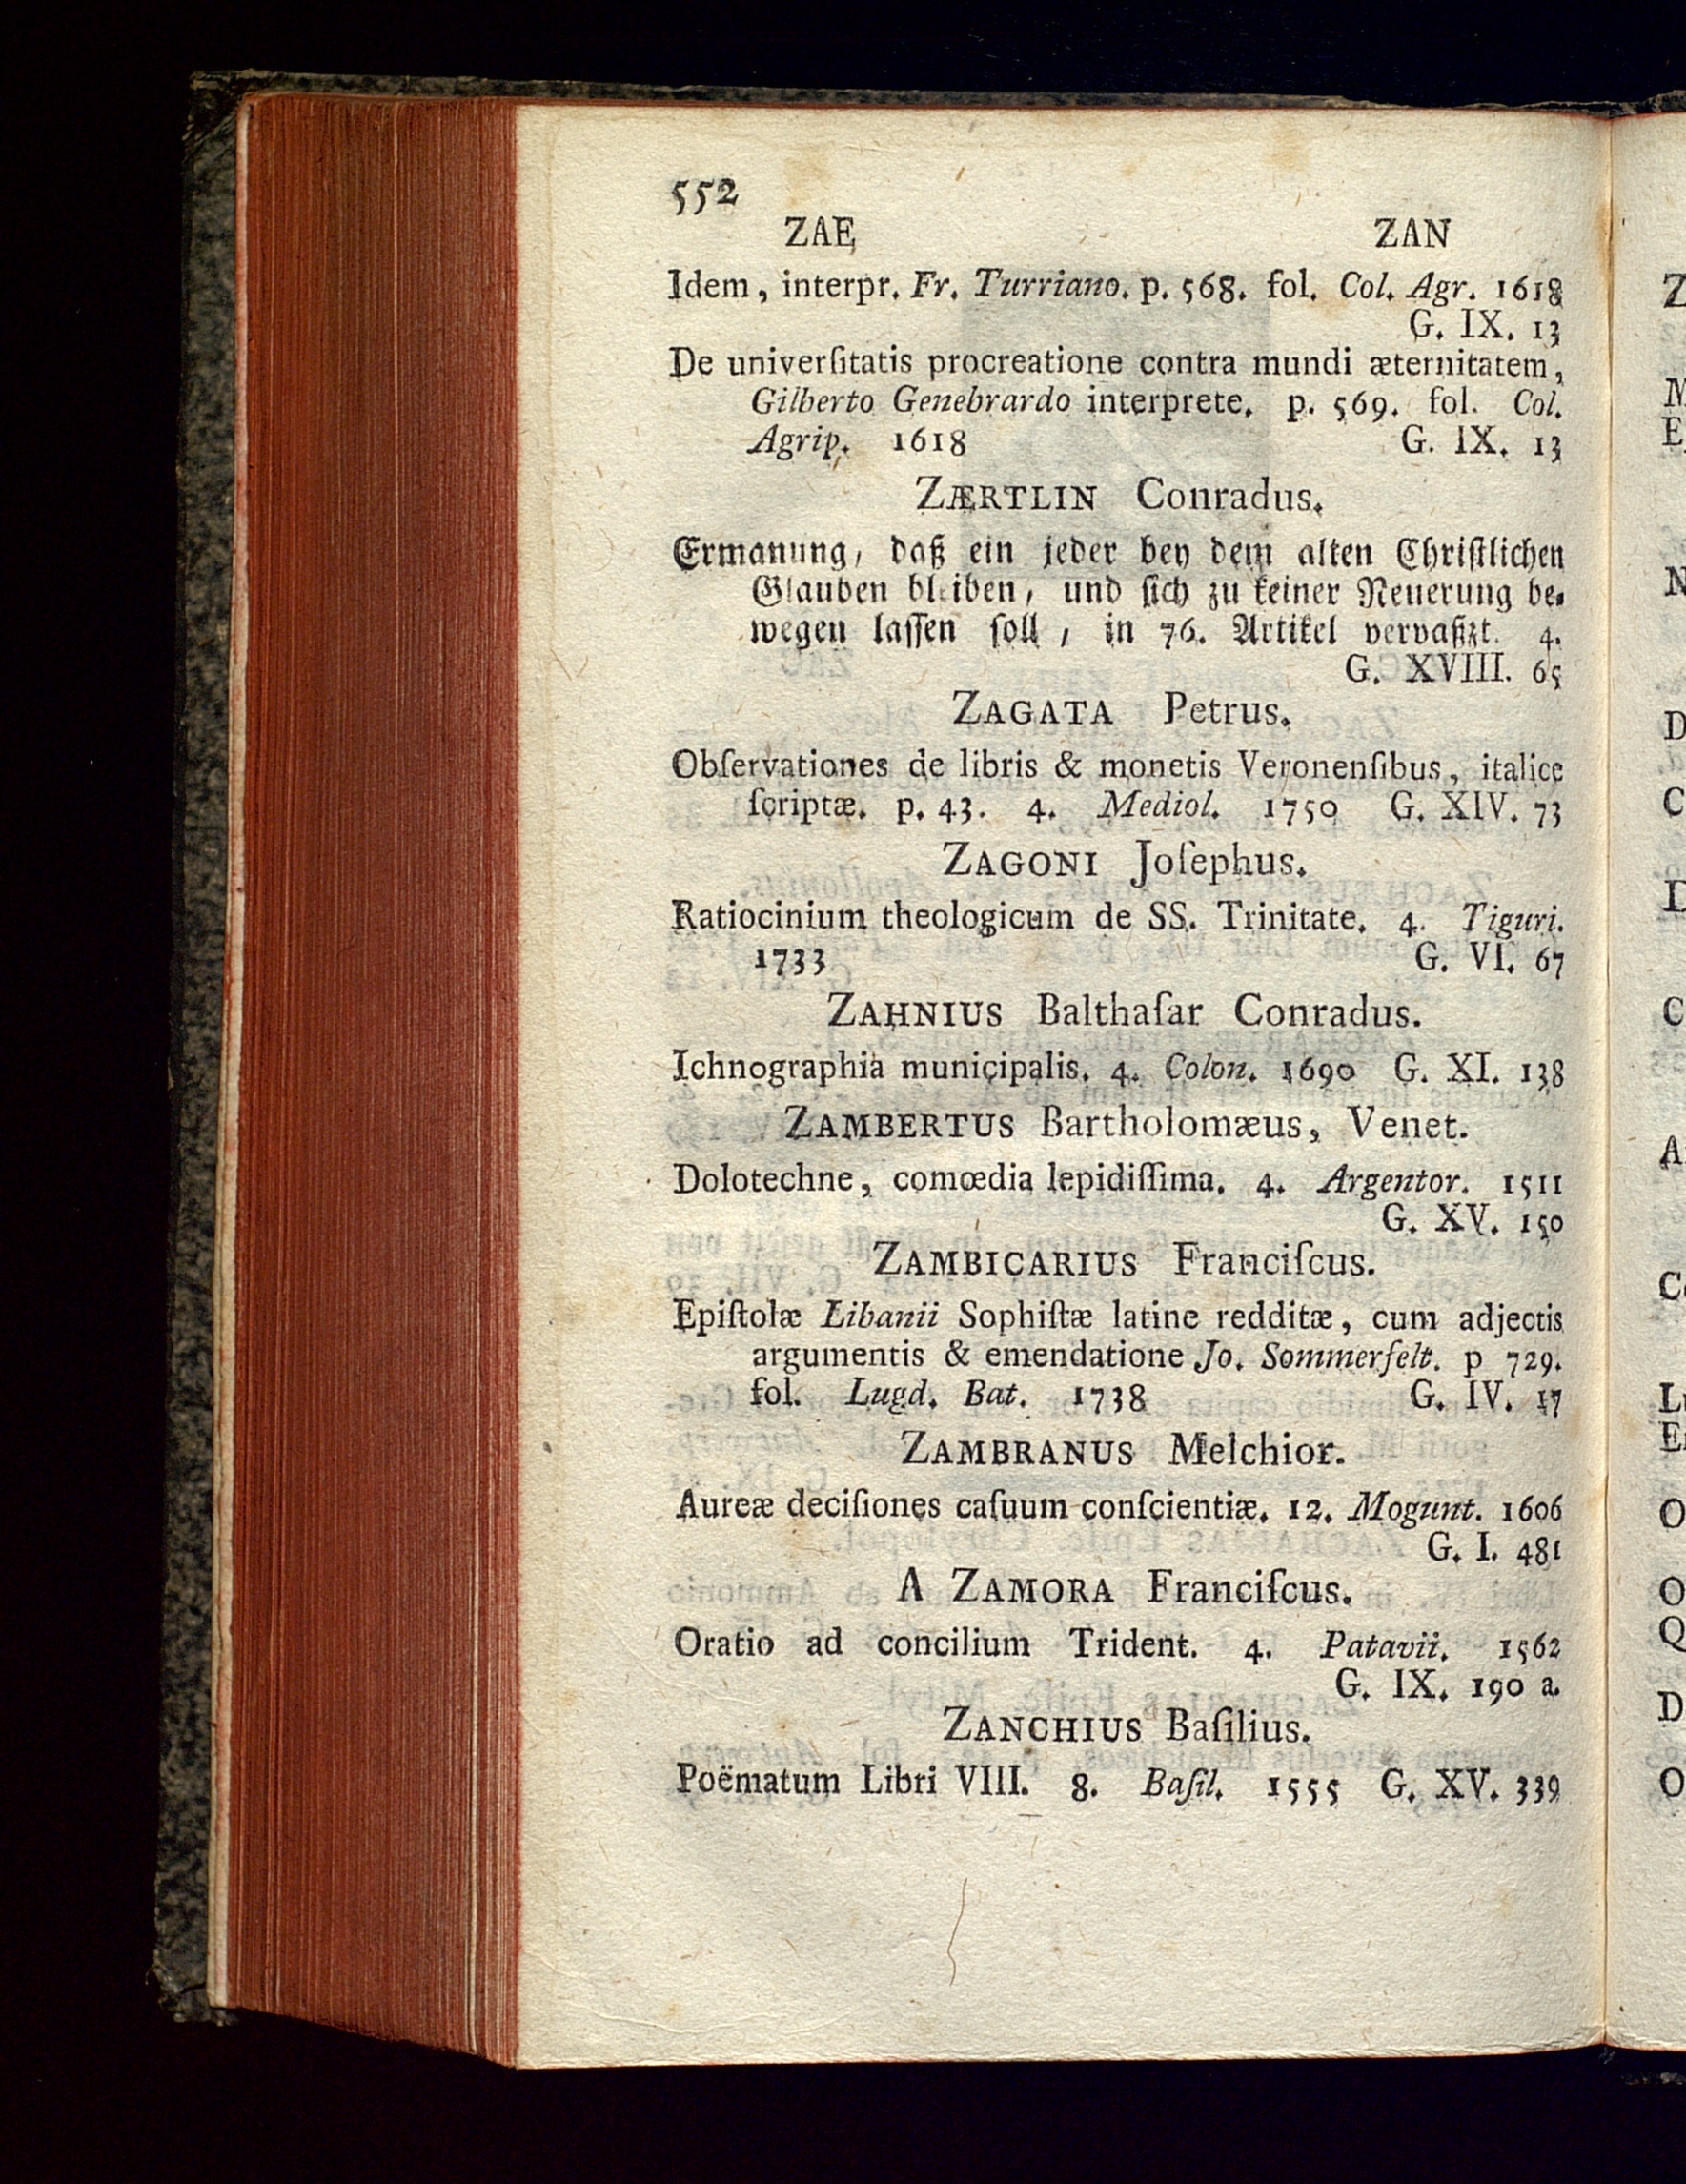 552
ZAE ZAN
Idem, interpr. Fr. Turriano. p. 568. fol. Col. Agr. 1618
G. IX. 13
De univerſitatis procreatione contra mundi æternitatem,
Gilberto Genebrardo interprete. p. 569. fol. Col.
Agrip. 1618 G. IX. 13
ZÆRTLIN Conradus.
Ermanung, daß ein jeder bey dem alten Chriſtlichen
Glauben bleiben, und ſich zu keiner Neuerung be-
wegen laſſen ſoll, in 76. Artikel vervaßzt. 4.
G. XVIII. 65
ZAGATA Petrus.
Obſervationes de libris & monetis Veronenſibus, italice
ſcriptæ. p. 43. 4. Mediol. 1750 G. XIV. 73
ZAGONI Joſephus.
Ratiocinium theologicum de SS. Trinitate. 4. Tiguri.
1733 G. VI. 67
ZAHNIUS Balthaſar Conradus.
Ichnographia municipalis. 4. Colon. 1690 G. XI. 138
ZAMBERTUS Bartholomæus, Venet.
Dolotechne, comœdia lepidiſſima. 4. Argentor. 1511
G. XV. 150
ZAMBICARIUS Franciſcus.
Epiſtolæ Libanii Sophiſtæ latine redditæ, cum adjectis
argumentis & emendatione Jo. Sommerfelt. p 729.
fol. Lugd. Bat. 1738 G. IV. 17
ZAMBRANUS Melchior.
Aureæ deciſiones caſuum conſcientiæ. 12. Mogunt. 1606
G. I. 481
A ZAMORA Franciſcus.
Oratio ad concilium Trident. 4. Patavii. 1562
G. IX. 190 a.
ZANCHIUS Baſilius.
Poëmatum Libri VIII. 8. Baſil. 1555 G. XV. 339